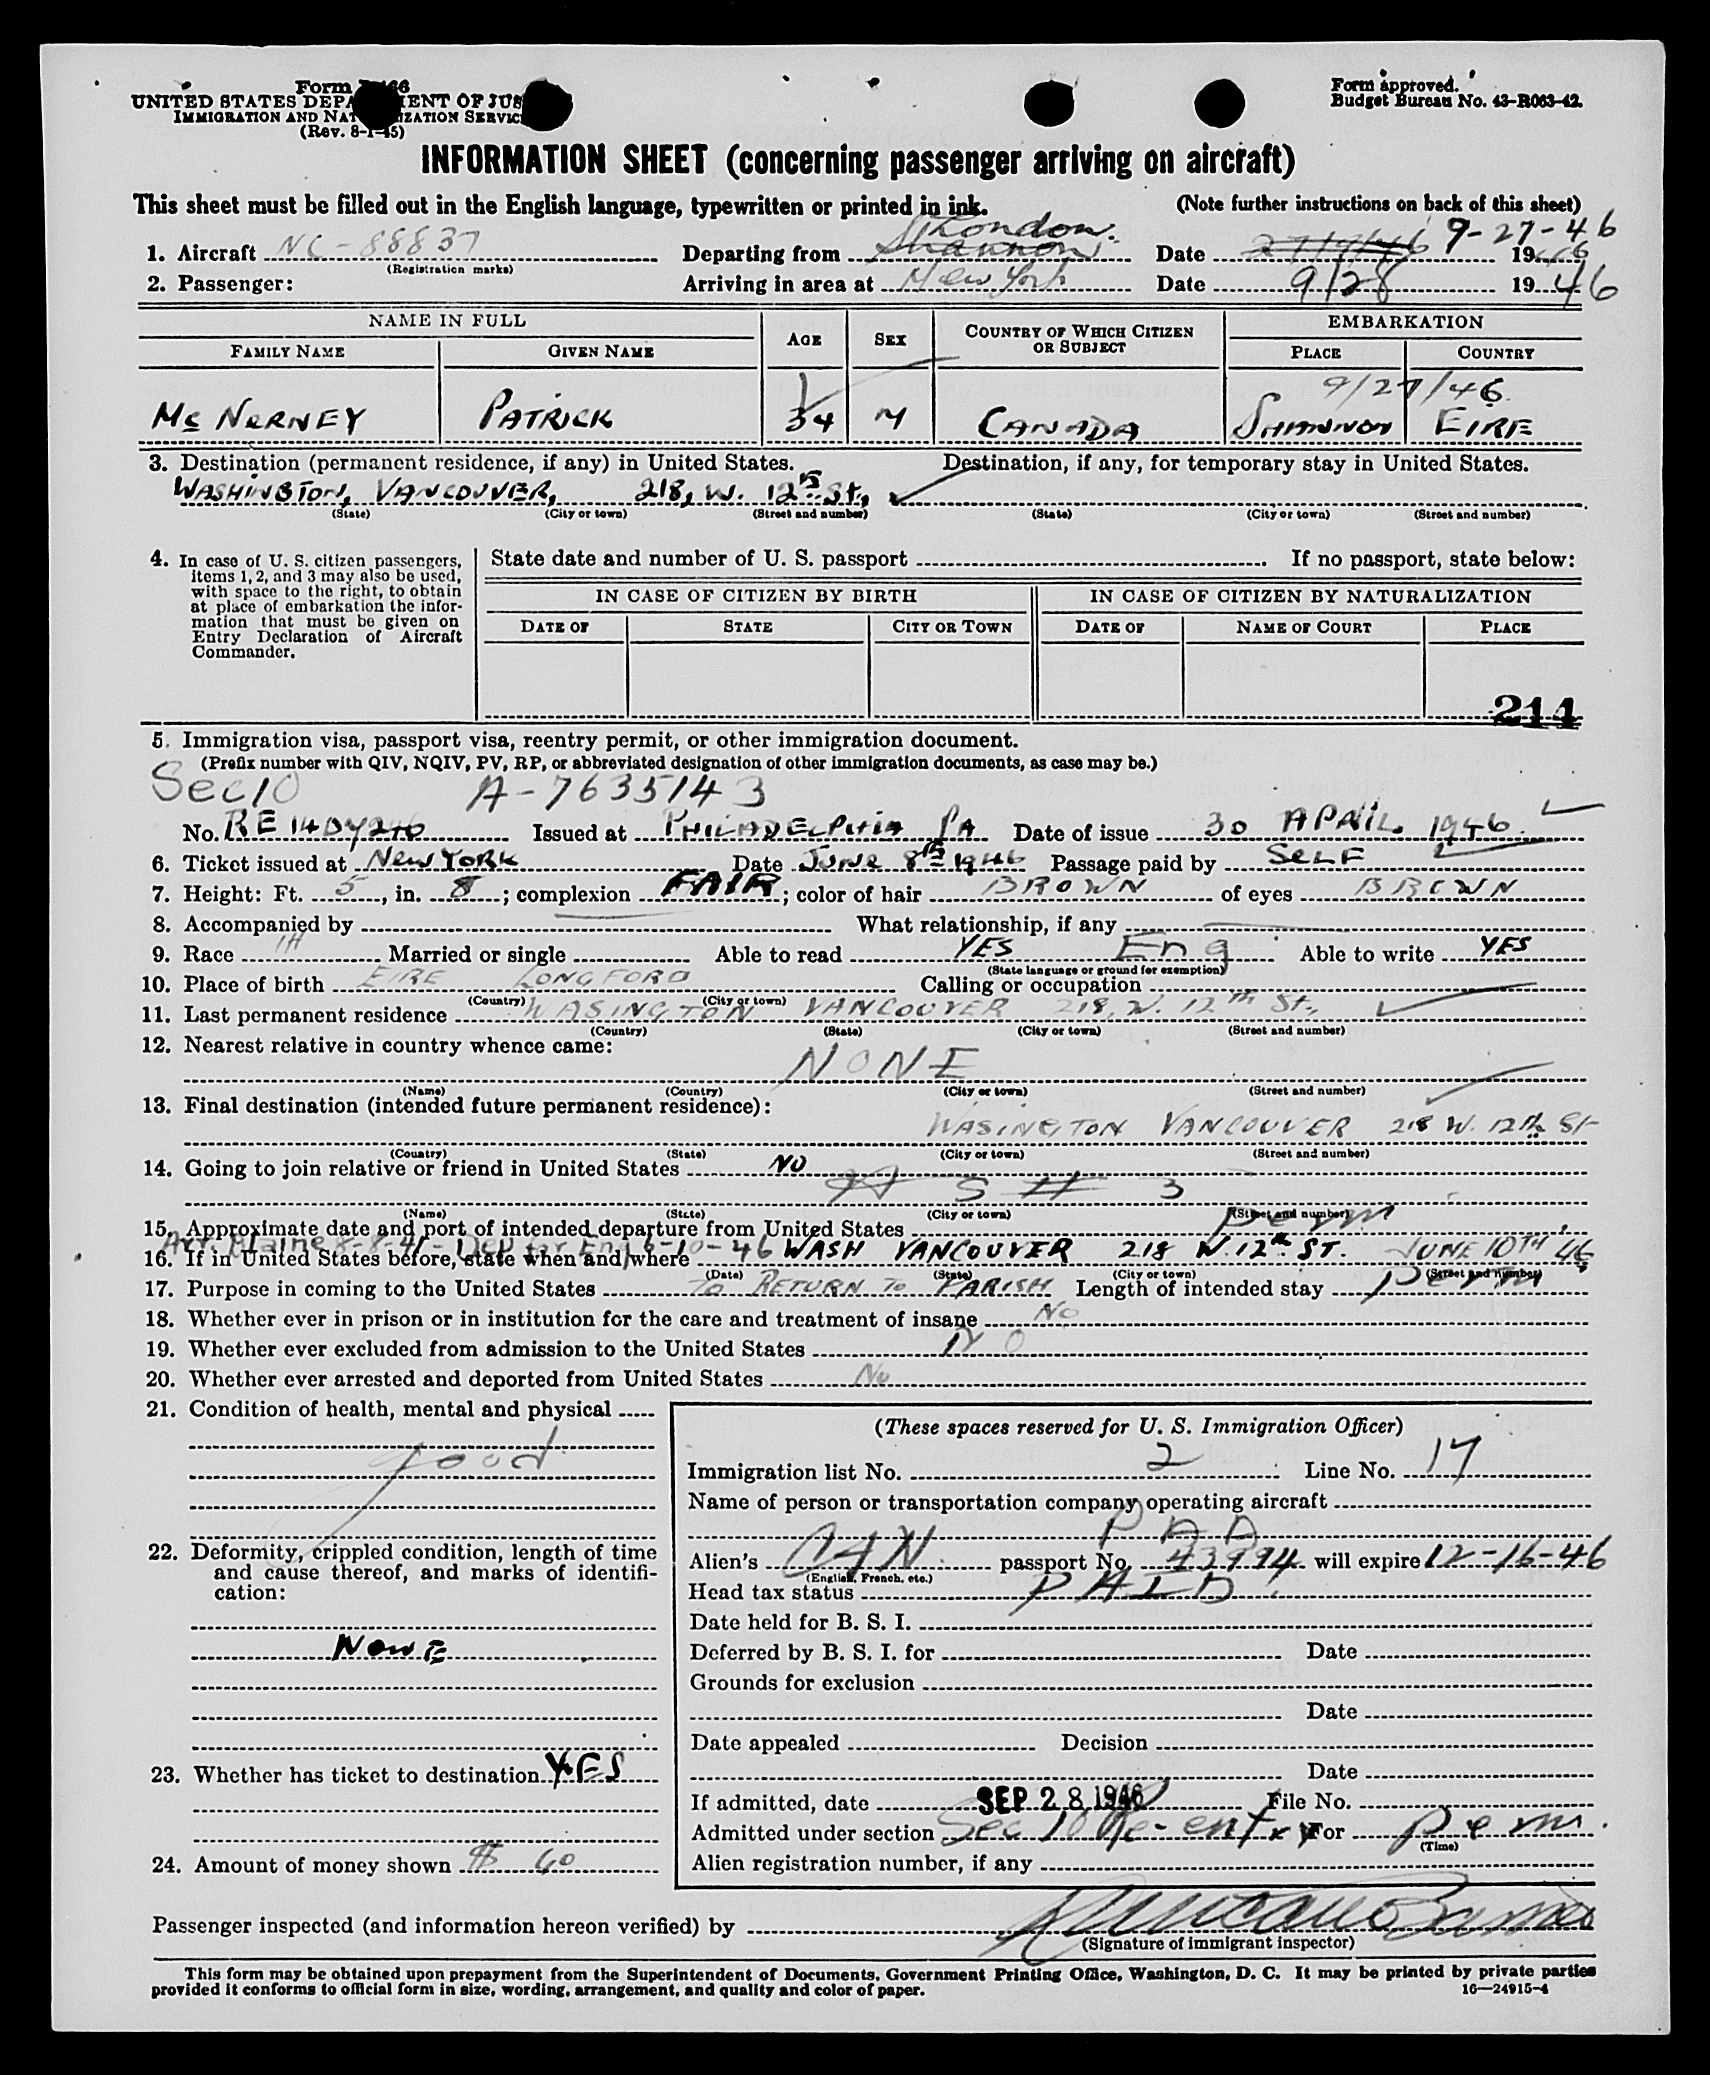 Form I-466
UNITED STATES DEPARTMENT OF JUSTICE
IMMIGRATION AND NATURALIZATION SERVICE
(Rev. 8-1-45)
Form approved.
Budget Bureau No. 43-R063-42.
INFORMATION SHEET (concerning passenger arriving on aircraft)
This sheet must be filled out in the English language, typewritten or printed in ink. (Note further instructions on back of this sheet)
London.
1. Aircraft NC-88837 Departing from Shannon Date 27/9/46 9-27-46 1946
(Registration marks)
2. Passenger: Arriving in area at New York Date 9/28 1946
NAME IN FULL AGE SEX COUNTRY OF WHICH CITIZEN OR SUBJECT EMBARKATION
FAMILY NAME GIVEN NAME PLACE COUNTRY
9/27/46
Mc NERNEY PATRICK 34 M CANADA SHANNON EIRE
3. Destination (permanent residence, if any) in United States. Destination, if any, for temporary stay in United States.
WASHINGTON, VANCOUVER, 218, W. 12th St,
(State) (City or town) (Street and number) (State) (City or town) (Street and number)
4. In case of U. S. citizen passengers, items 1, 2, and 3 may also be used, with space to the right, to obtain at place of embarkation the information that must be given on Entry Declaration of Aircraft Commander.
State date and number of U. S. passport If no passport, state below:
IN CASE OF CITIZEN BY BIRTH IN CASE OF CITIZEN BY NATURALIZATION
DATE OF STATE CITY OR TOWN DATE OF NAME OF COURT PLACE
214
5. Immigration visa, passport visa, reentry permit, or other immigration document.
(Prefix number with QIV, NQIV, PV, RP, or abbreviated designation of other immigration documents, as case may be.)
Sec 10 A-7635143
No. Issued at PHILADELPHIA PA Date of issue 30 APRIL. 1946.
6. Ticket issued at NEW YORK Date JUNE 8th 1946 Passage paid by SELF
7. Height: Ft. 5, in. 8; complexion FAIR; color of hair BROWN of eyes BROWN
8. Accompanied by What relationship, if any
9. Race IH Married or single Able to read YES Eng Able to write YES
(State language or ground for exemption)
10. Place of birth EIRE LONGFORD Calling or occupation
(Country) (City or town)
11. Last permanent residence WASINGTON VANCOUVER 218, W. 12th St,
(Country) (State) (City or town) (Street and number)
12. Nearest relative in country whence came:
NONE
(Name) (Country) (City or town) (Street and number)
13. Final destination (intended future permanent residence):
WASINGTON VANCOUVER 218 W. 12th St
(Country) (State) (City or town) (Street and number)
14. Going to join relative or friend in United States NO
(Name) (State) (City or town) (Street and number)
15. Approximate date and port of intended departure from United States perm
Arr. Blaine 8-8-41 - Dep for Eng 6-10-46
16. If in United States before, state when and where WASH VANCOUVER 218 W. 12th ST. JUNE 10TH 46
(Date) (State) (City or town) (Street and number)
17. Purpose in coming to the United States TO RETURN TO PARISH Length of intended stay perm
18. Whether ever in prison or in institution for the care and treatment of insane NO
19. Whether ever excluded from admission to the United States NO
20. Whether ever arrested and deported from United States No
21. Condition of health, mental and physical
good
22. Deformity, crippled condition, length of time and cause thereof, and marks of identification:
NONE
23. Whether has ticket to destination YES
24. Amount of money shown $ 60
(These spaces reserved for U. S. Immigration Officer)
Immigration list No. 2 Line No. 17
Name of person or transportation company operating aircraft
PAA
Alien's CAN passport No. 43994 will expire 12-16-46
(English, French, etc.)
Head tax status PAID
Date held for B. S. I.
Deferred by B. S. I. for Date
Grounds for exclusion
Date
Date appealed Decision
Date
If admitted, date SEP 28 1946 File No.
Admitted under section Sec 10 Re-entry For perm.
(Time)
Alien registration number, if any
Passenger inspected (and information hereon verified) by
(Signature of immigrant inspector)
This form may be obtained upon prepayment from the Superintendent of Documents, Government Printing Office, Washington, D. C. It may be printed by private parties
provided it conforms to official form in size, wording, arrangement, and quality and color of paper. 16—24915-4